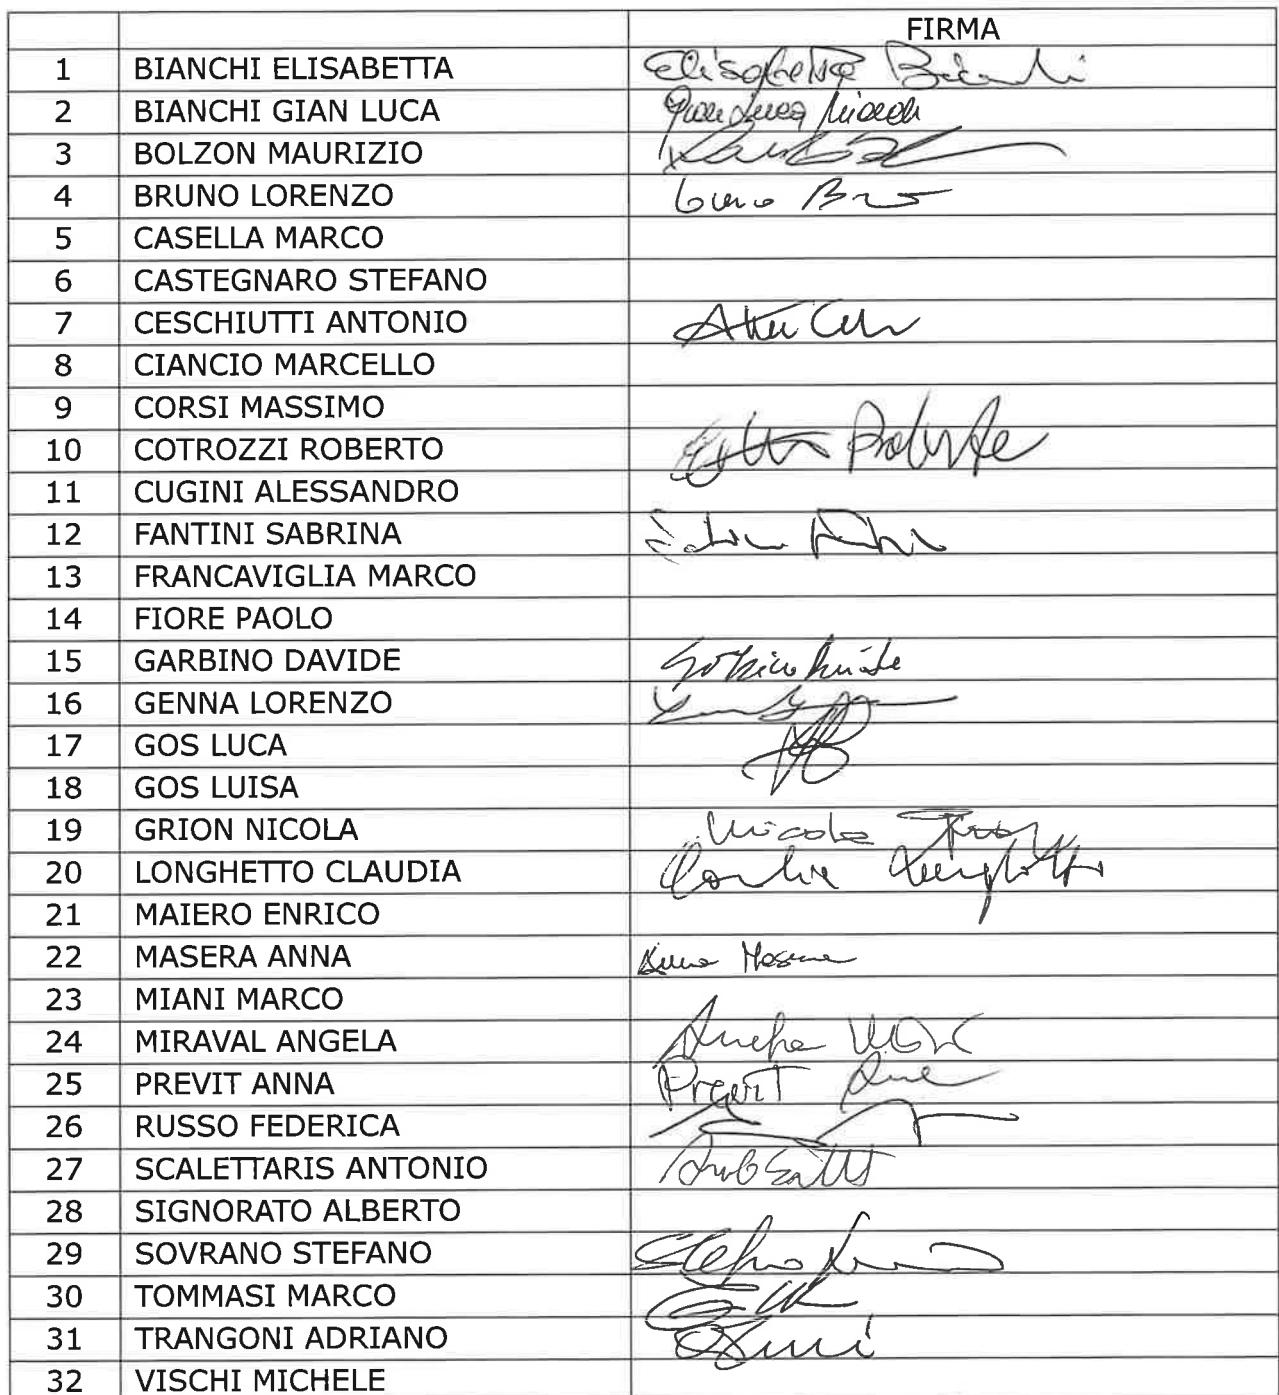 FIRMA
1 BIANCHI ELISABETTA Elisabetta Bianchi
2 BIANCHI GIAN LUCA Gian Luca Bianchi
3 BOLZON MAURIZIO
4 BRUNO LORENZO
5 CASELLA MARCO
6 CASTEGNARO STEFANO
7 CESCHIUTTI ANTONIO
8 CIANCIO MARCELLO
9 CORSI MASSIMO
10 COTROZZI ROBERTO Roberto
11 CUGINI ALESSANDRO
12 FANTINI SABRINA
13 FRANCAVIGLIA MARCO
14 FIORE PAOLO
15 GARBINO DAVIDE
16 GENNA LORENZO
17 GOS LUCA
18 GOS LUISA
19 GRION NICOLA Nicola Grion
20 LONGHETTO CLAUDIA Claudia Longhetto
21 MAIERO ENRICO
22 MASERA ANNA Anna Masera
23 MIANI MARCO
24 MIRAVAL ANGELA Angela
25 PREVIT ANNA Previt Anna
26 RUSSO FEDERICA
27 SCALETTARIS ANTONIO
28 SIGNORATO ALBERTO
29 SOVRANO STEFANO Stefano
30 TOMMASI MARCO
31 TRANGONI ADRIANO
32 VISCHI MICHELE